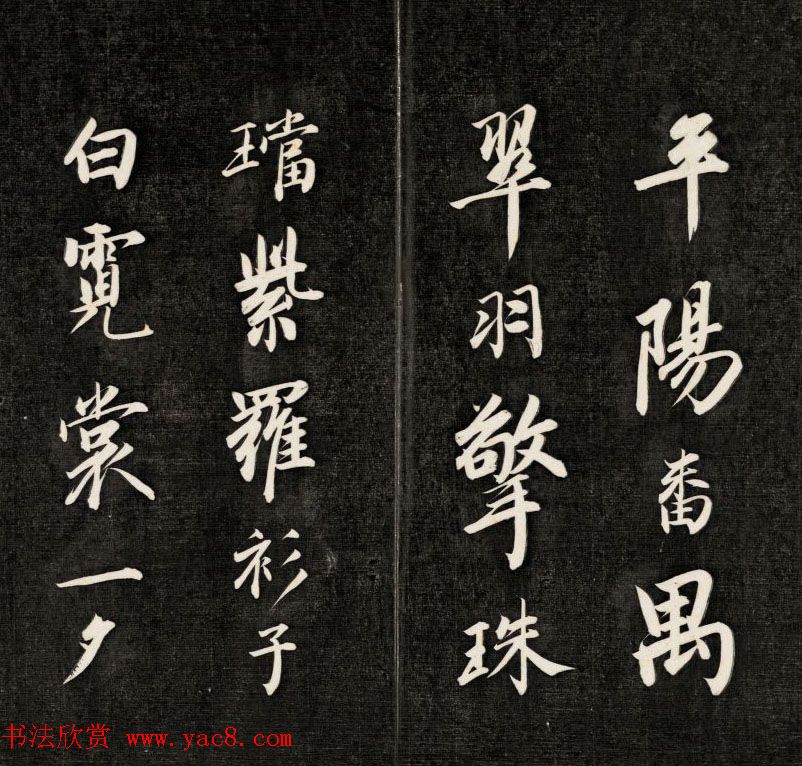 平陽番禺
翠羽擎珠
璫紫羅衫子
白霓裳一夕
书法欣赏 www.yac8.com